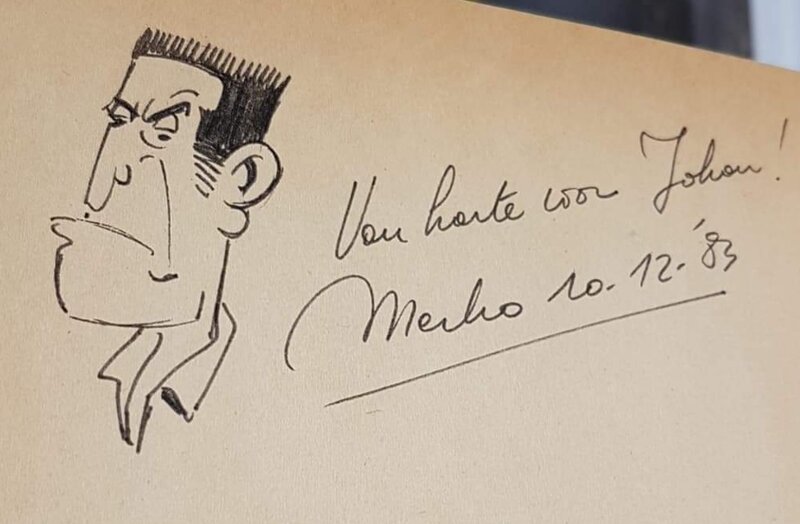 Van harte voor Johan!
Merho 10-12-'83